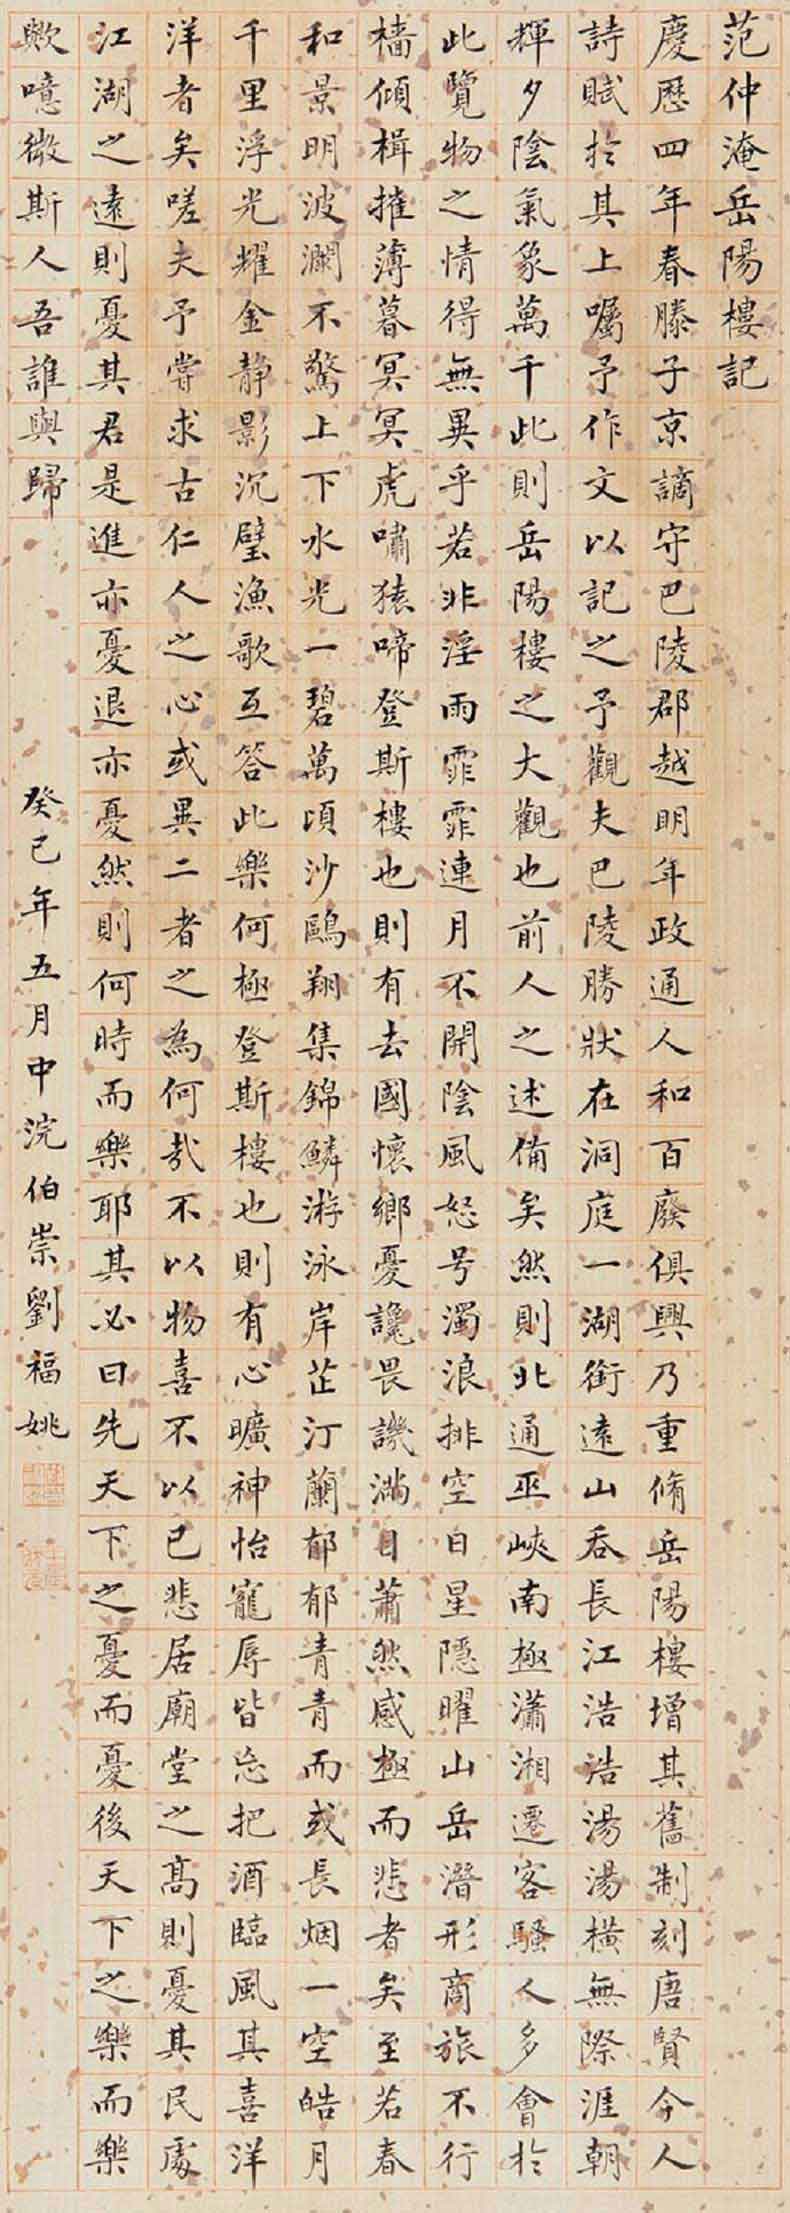 范仲淹岳陽樓記
慶曆四年春滕子京謫守巴陵郡越明年政通人和百廢俱興乃重脩岳陽樓增其舊制刻唐賢今人
詩賦於其上囑予作文以記之予觀夫巴陵勝狀在洞庭一湖銜遠山吞長江浩浩湯湯橫無際涯朝
輝夕陰氣象萬千此則岳陽樓之大觀也前人之述備矣然則北通巫峽南極瀟湘遷客騷人多會於
此覽物之情得無異乎若非淫雨霏霏連月不開陰風怒号濁浪排空日星隱曜山岳潛形商旅不行
檣傾楫摧薄暮冥冥虎嘯猿啼登斯樓也則有去國懷鄉憂讒畏譏滿目蕭然感極而悲者矣至若春
和景明波瀾不驚上下水光一碧萬頃沙鷗翔集錦鱗游泳岸芷汀蘭郁郁青青而或長烟一空皓月
千里浮光耀金静影沉璧漁歌互答此樂何極登斯樓也則有心曠神怡寵辱皆忘把酒臨風其喜洋
洋者矣嗟夫予嘗求古仁人之心或異二者之為何哉不以物喜不以己悲居廟堂之高則憂其民處
江湖之遠則憂其君是進亦憂退亦憂然則何時而樂耶其必曰先天下之憂而憂後天下之樂而樂
歟噫微斯人吾誰與歸
癸巳年五月中浣伯崇劉福姚